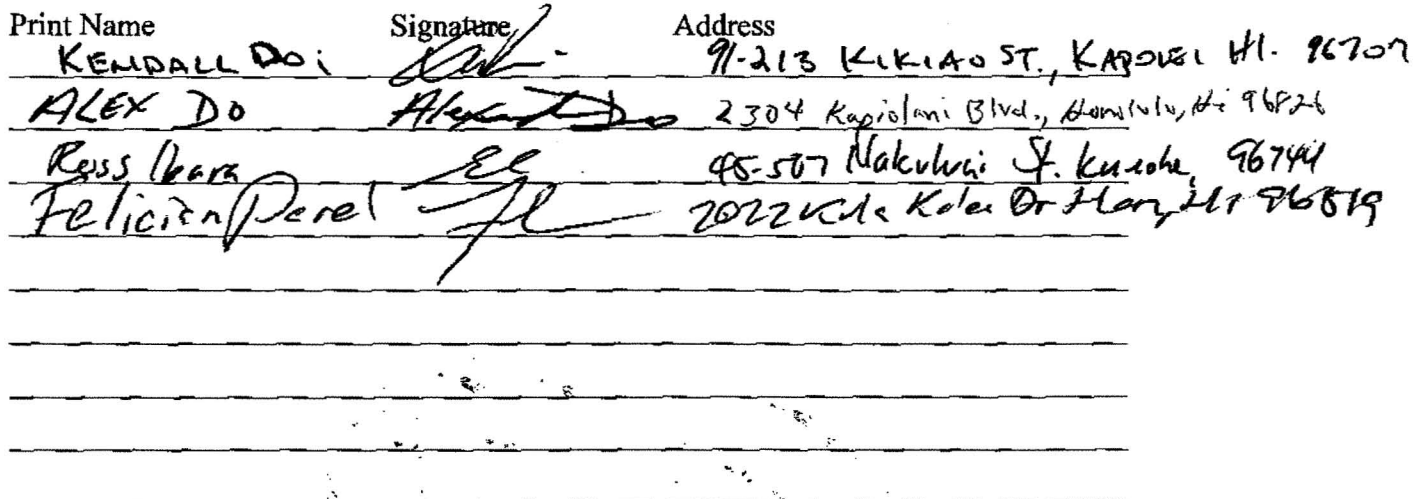 Print Name Signature Address
KENDALL DOi 91-213 KIKIAO ST., KAPOLEI HI. 96707
ALEX DO Alexant Do 2304 Kapiolani Blvd., Honolulu, Hi 96826
Ross Ibara 45-507 St. 96744
Felicien Perel 2022 Dr HI 96819